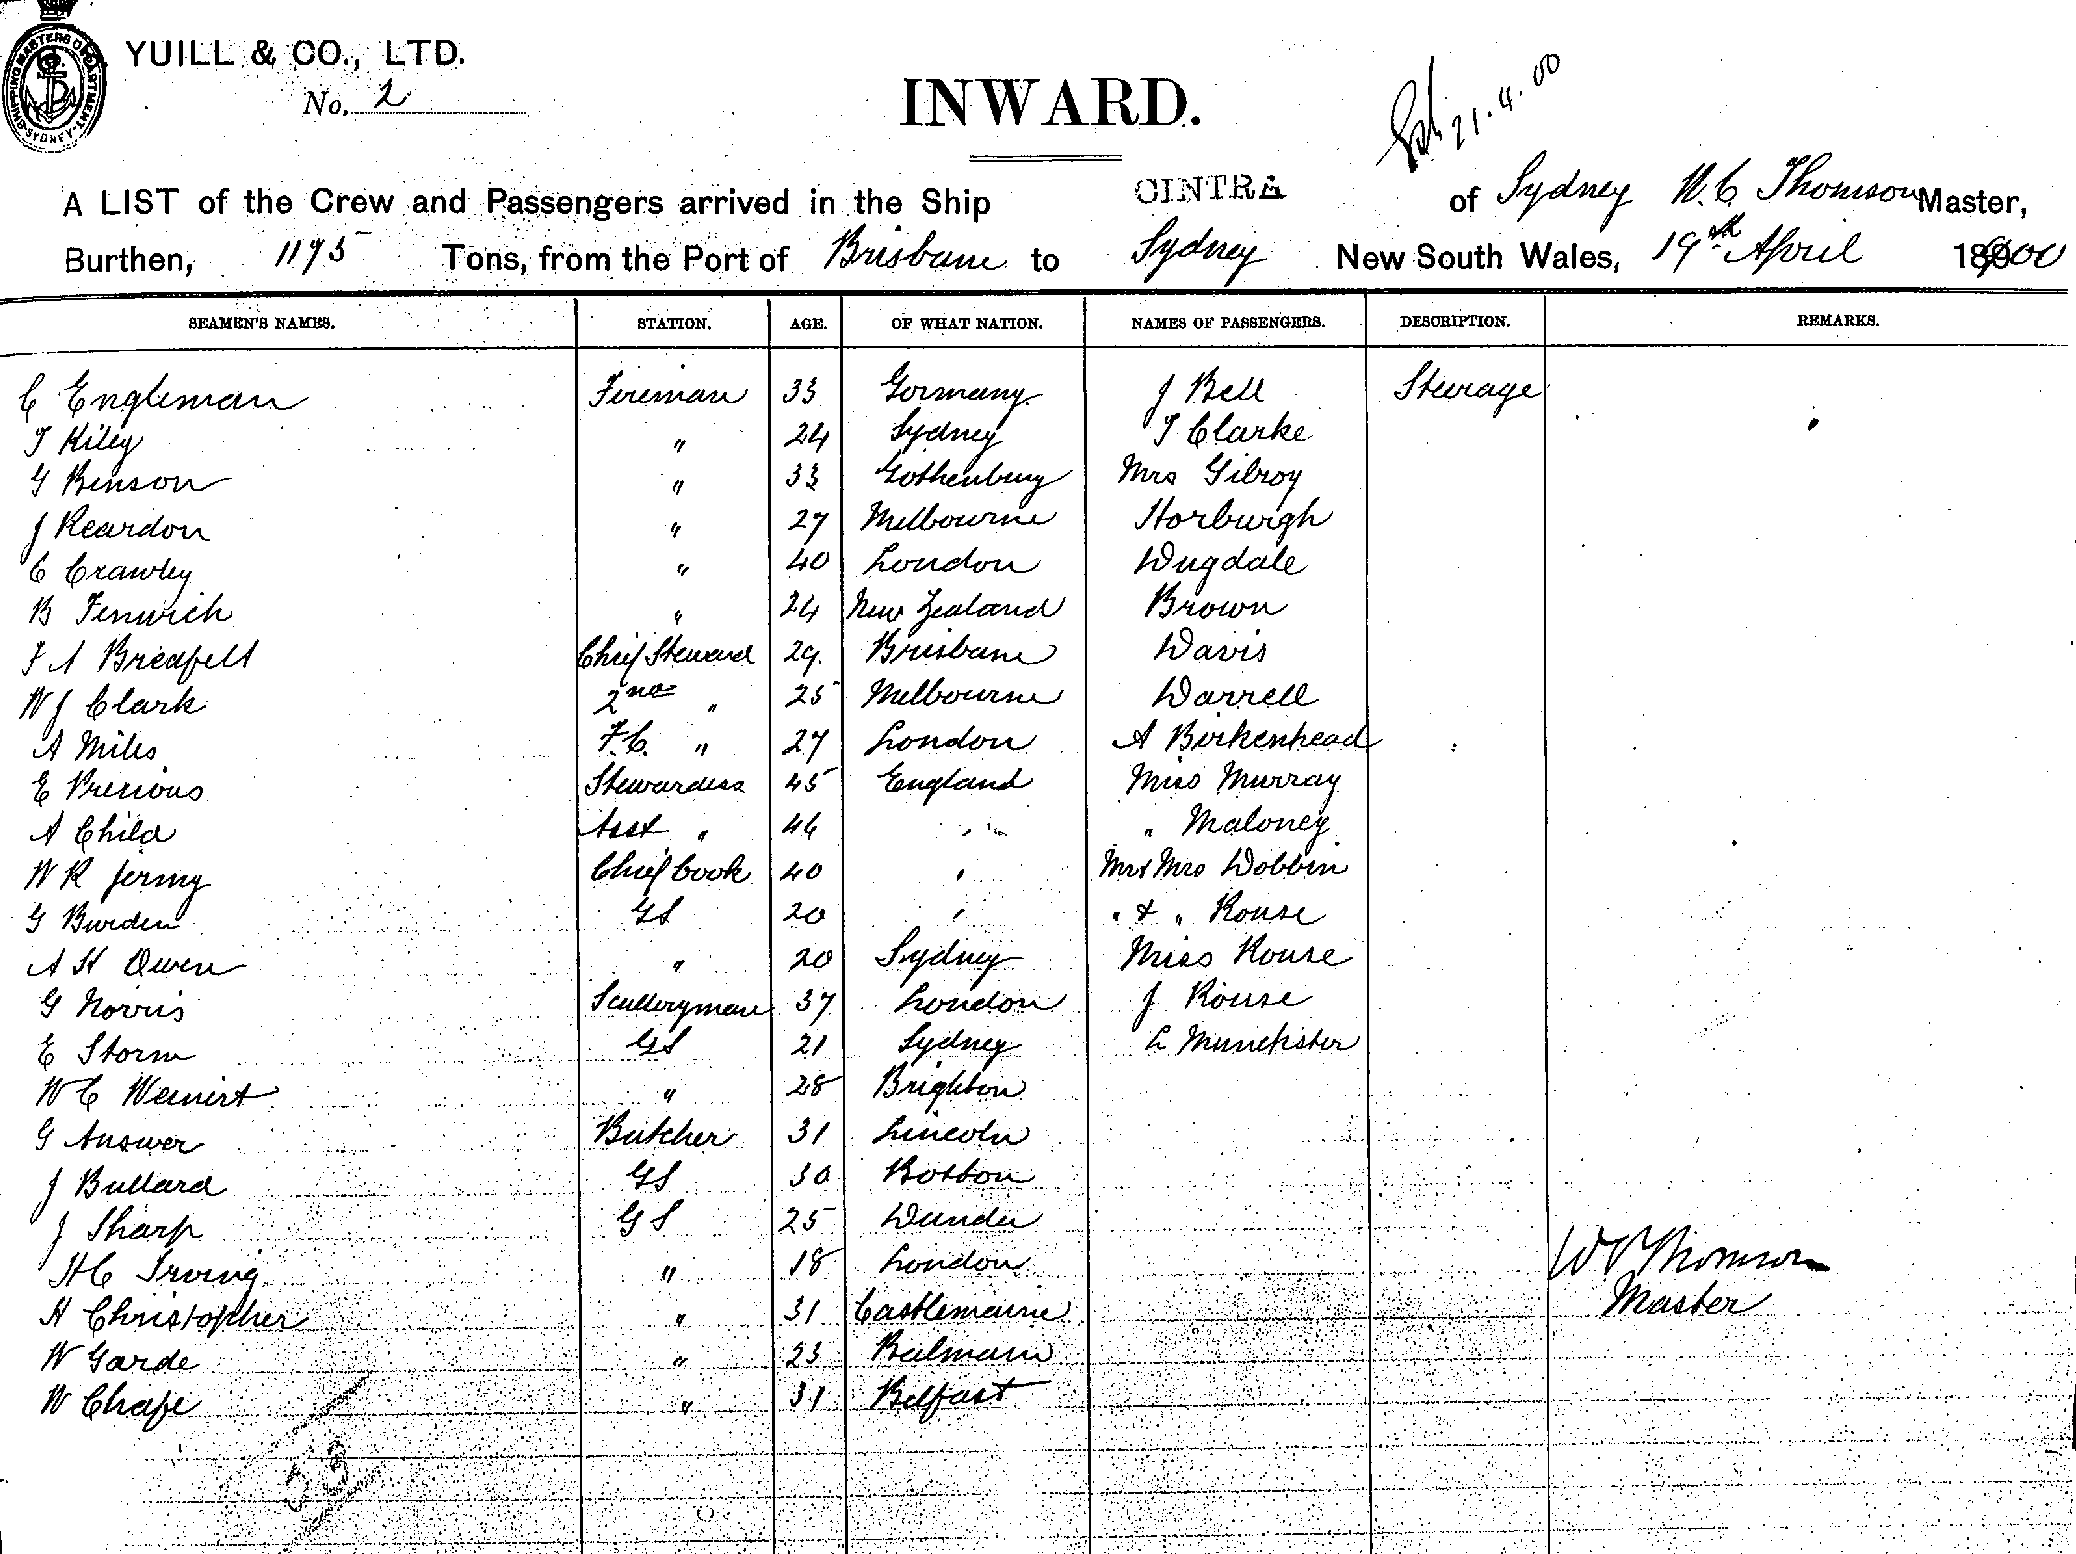 YUILL & CO., LTD.
No. 2
SHIPPING MASTERS DEPARTMENT SYDNEY
INWARD.
21.4.00
A LIST of the Crew and Passengers arrived in the Ship CINTRA of Sydney W. C. Thomson Master,
Burthen, 1193 Tons, from the Port of Brisbane to Sydney New South Wales, 19th April 1900
SEAMEN'S NAMES. STATION. AGE. OF WHAT NATION. NAMES OF PASSENGERS. DESCRIPTION. REMARKS.
C Engleman Fireman 33 Germany J Bell Steerage
T Kiley " 24 Sydney T Clarke
G Benson " 33 Gothenburg Mrs Gilroy
J Reardon " 27 Melbourne Horburgh
C Crawley " 40 London Dugdale
B Fenwick " 24 New Zealand Brown
F A Bredfelt Chief Steward 29 Brisbane Davis
W J Clark 2nd " 25 Melbourne Darrell
A Miles F.C. " 27 London A Birkenhead
E Precious Stewardess 45 England Miss Murray
A Child Asst " 46 " " Maloney
W R Jermy Chief Cook 40 " Mr & Mrs Dobbin
G Burden GS 20 " " & " Rouse
A H Owen " 20 Sydney Miss Rouse
G Norris Sculleryman 37 London J Rouse
E Storm GS 21 Sydney L Munchster
W C Weinert " 28 Brighton
G Answer Butcher 31 Lincoln
J Bullard GS 30 Botton
J Sharp GS 25 Dundee
H C Irving " 18 London
W C Thomson
H Christopher " 31 Castlemaine
Master
W Garde " 23 Balmain
W Chafe " 31 Belfast